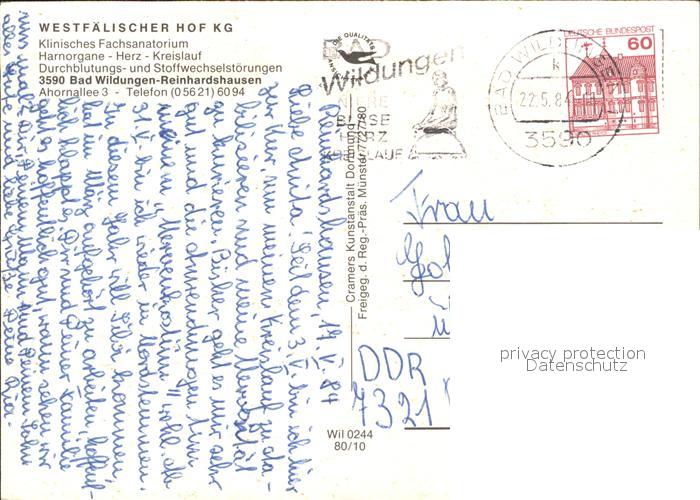 WESTFÄLISCHER HOF KG
Klinisches Fachsanatorium
Harnorgane - Herz - Kreislauf
Durchblutungs- und Stoffwechselstörungen
3590 Bad Wildungen-Reinhardshausen
Ahornallee 3 - Telefon (05621) 6094
BAD
Wildungen
NIERE
BLASE
HERZ
KREISLAUF
BAD WILDUNGEN
k
22.5.84
3590
DEUTSCHE BUNDESPOST
60
Reinhardshausen, 19. V. 84
Liebe Anita! Seit dem 3. V. bin ich hier
zur Kur, um meinen Kreislauf zu sta-
bilisieren und meine Nervosität
zu kurieren. Bisher geht es mir sehr
gut und die Anwendungen tun
meinem "Nervenkostüm" wohl. Ab
31. V. bin ich wieder in Nordstemmen.
In diesem Jahr will
hat im März aufgehört zu arbeiten, hoffent-
lich klappt es. Dir und Deiner Familie
geht's hoffentlich gut, wann sehen wir
uns mal? Dir, Deinem Mann und Deinem Sohn
alles Gute und liebe Grüße Deine
Cramers Kunstanstalt Dortmund
Freigeg. d. Reg.-Präs. Münster 7727/80
Frau
DDR
7321
Wil 0244
80/10
privacy protection
Datenschutz